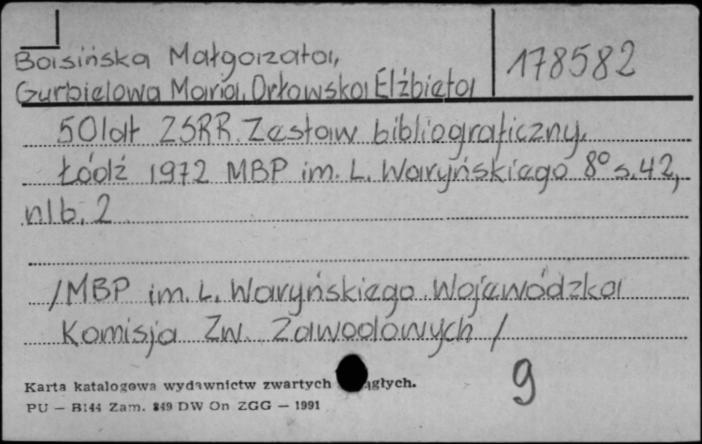 Basińska Małgorzata,
178582
Gurbielowa Maria, Orłowska Elżbieta
50 lat ZSRR. Zestaw bibliograficzny.
Łódź 1972 MBP im. L. Waryńskiego 8° s. 42,
nlb. 2
/MBP im. L. Waryńskiego Wojewódzka
Komisja Zw. Zawodowych/
9
Karta katalogowa wydawnictw zwartych ągłych.
PU — B144 Zam. 849 DW On ZGG — 1991